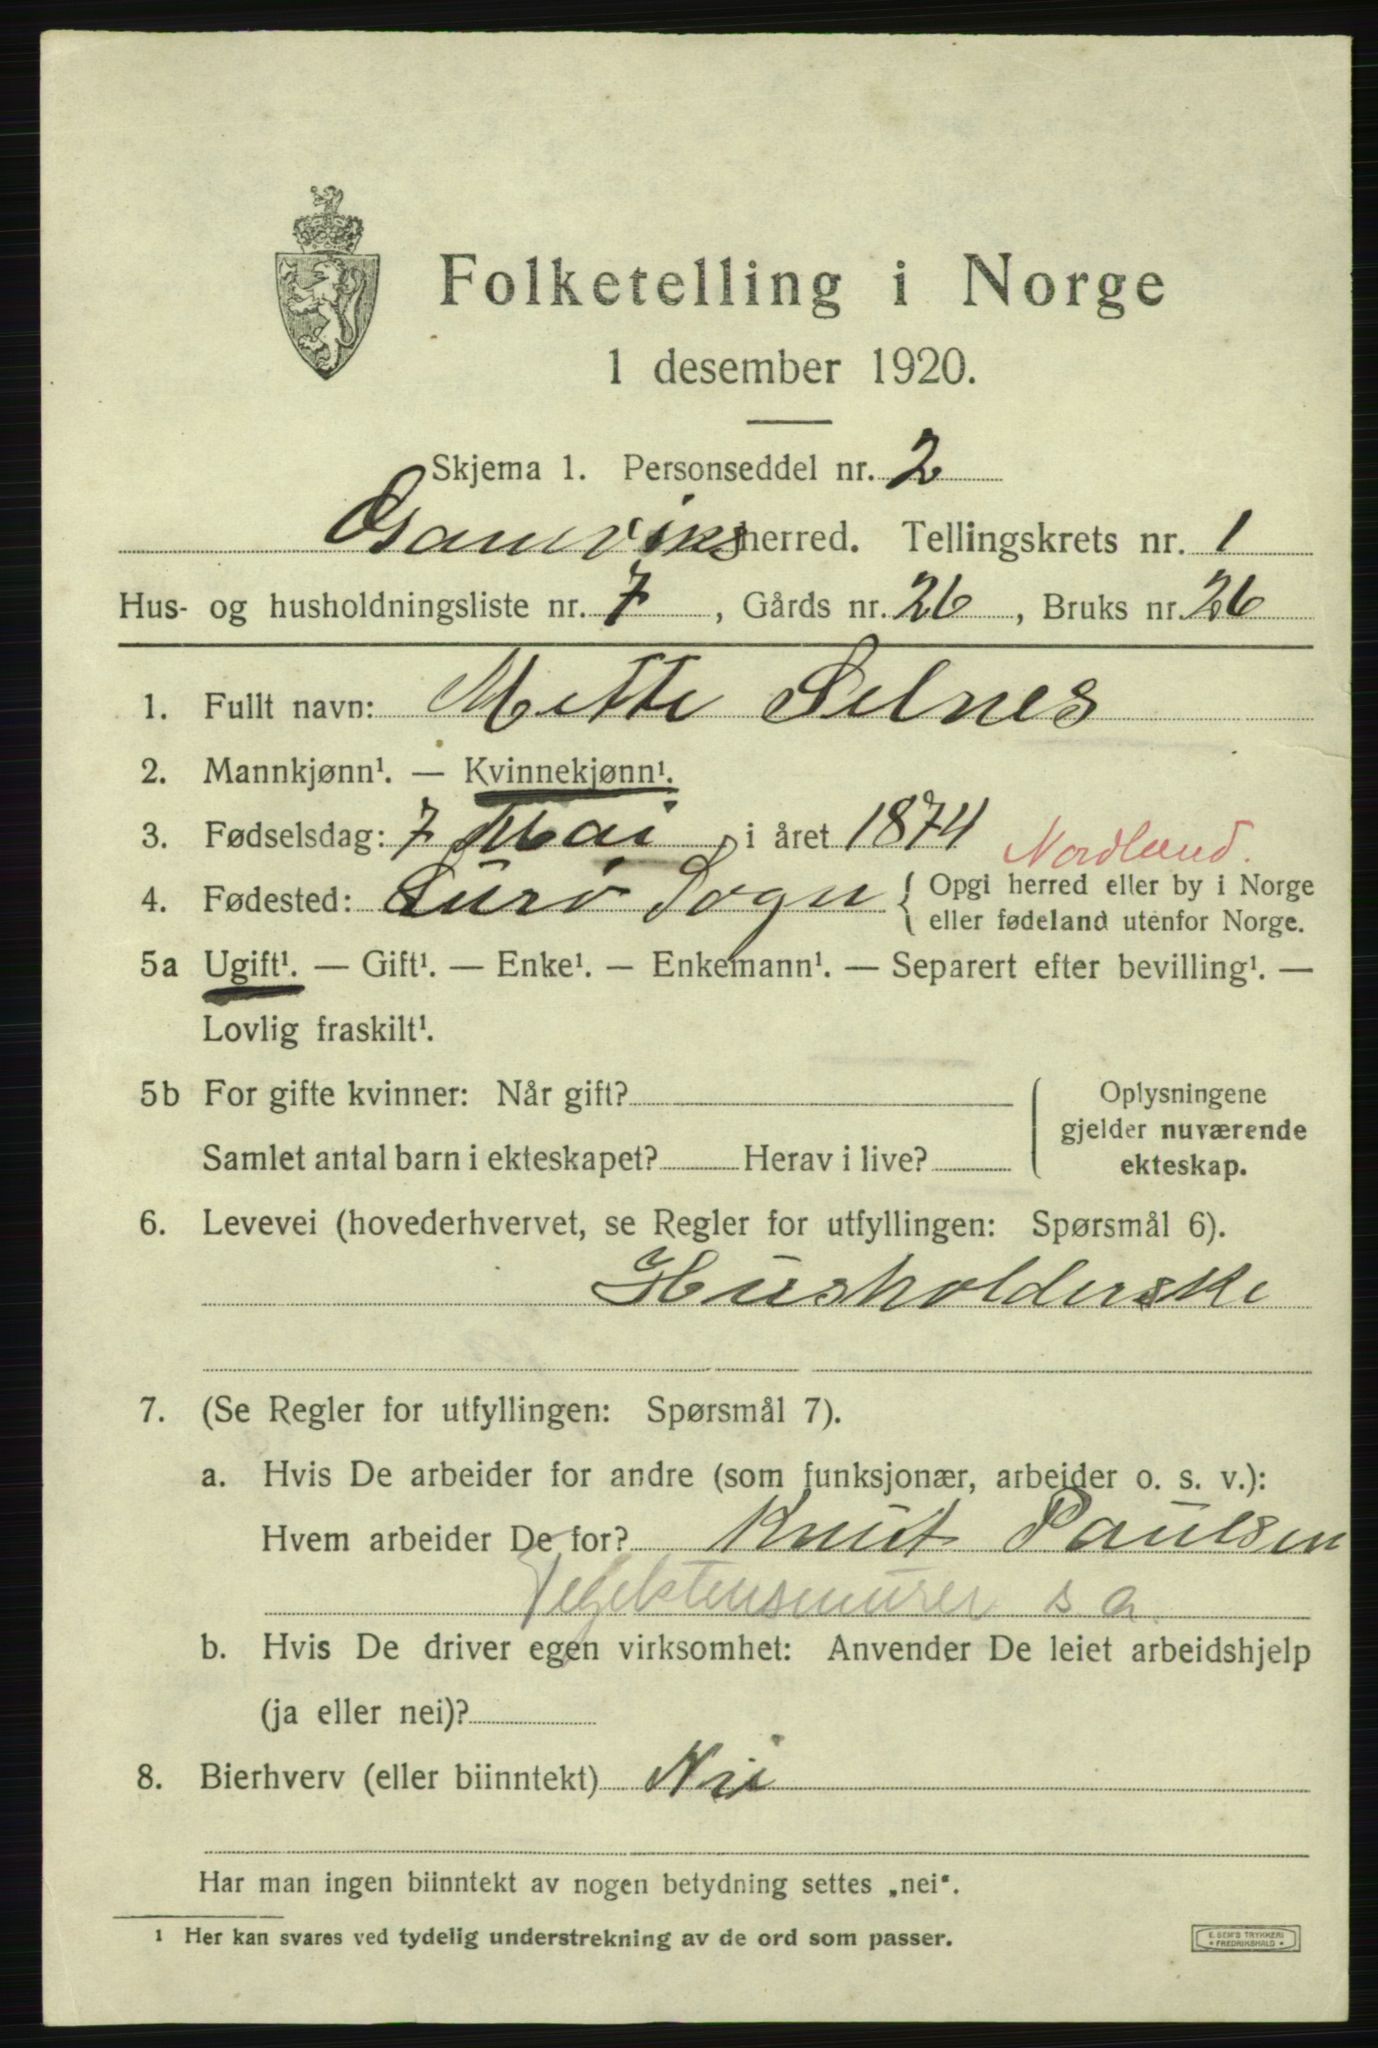 Folketelling i Norge
1 desember 1920.
Skjema 1. Personseddel nr. 2
Gamviks herred. Tellingskrets nr. 1
Hus- og husholdningsliste nr. 7, Gårds nr. 26, Bruks nr. 26
1. Fullt navn: Mette Selnes
2. Mannkjønn¹. — Kvinnekjønn¹.
3. Fødselsdag: 7 Mai, i året 1874
Nordland.
4. Fødested: Lurø Sogn { Opgi herred eller by i Norge
eller fødeland utenfor Norge.
5a Ugift¹. — Gift¹. — Enke¹. — Enkemann¹. — Separert efter bevilling¹. —
Lovlig fraskilt¹.
5b For gifte kvinner: Når gift?
Samlet antal barn i ekteskapet? Herav i live?
Oplysningene
gjelder nuværende
ekteskap.
6. Levevei (hovederhvervet, se Regler for utfyllingen: Spørsmål 6).
Husholderske
7. (Se Regler for utfyllingen: Spørsmål 7).
a. Hvis De arbeider for andre (som funksjonær, arbeider o. s. v.):
Hvem arbeider De for? Knut Paulsen
s a.
b. Hvis De driver egen virksomhet: Anvender De leiet arbeidshjelp
(ja eller nei)?
8. Bierhverv (eller biinntekt) Nei
Har man ingen biinntekt av nogen betydning settes „nei“.
¹ Her kan svares ved tydelig understrekning av de ord som passer.
E. SEM'S TRYKKERI
FREDRIKSHALD